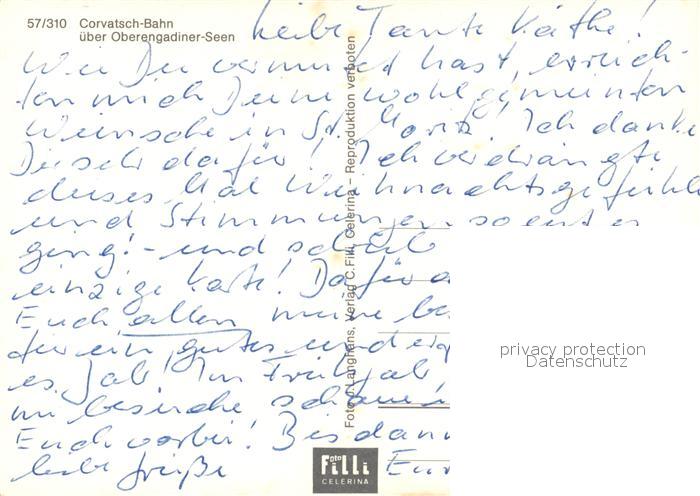 57/310 Corvatsch-Bahn
über Oberengadiner-Seen
Liebe Tante Käthe!
Wie Du vermutet hast, erreich-
ten mich Deine wohlgemeinten
Wünsche in St. Moritz! Ich danke
Dir sehr dafür! Ich verdrängte
dieses Mal Weihnachtsgefühle
und Stimmungen so gut es
ging! - und schrieb
einzige Karte! Dafür
Euch allen meine
für ein gutes und
es Jahr! Im Frühjahr
besuche
Euch vorbei! Bis dann
liebe Grüße
Foto J. Langhans, Verlag C. Filli, Celerina – Reproduktion verboten
privacy protection
Datenschutz
Foto
Filli
CELERINA